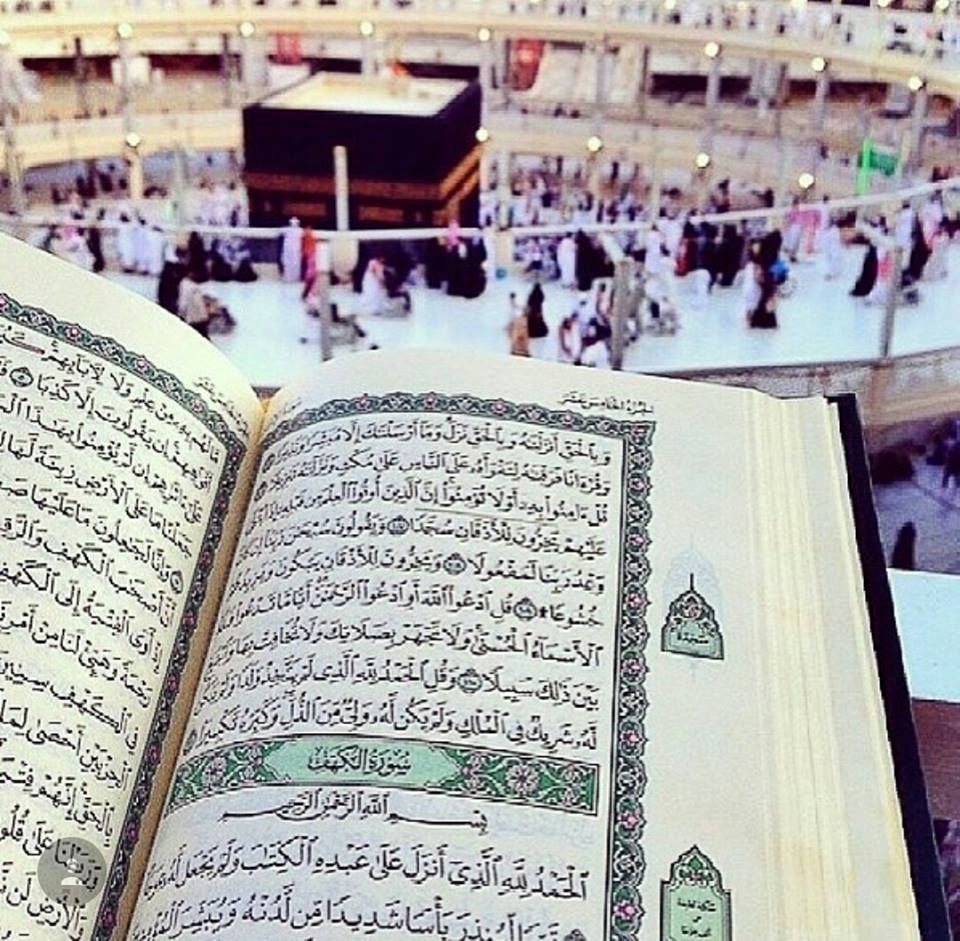 الجزء الخامس عشر
وَبِٱلْحَقِّ أَنزَلْنَٰهُ وَبِٱلْحَقِّ نَزَلَ وَمَآ أَرْسَلْنَٰكَ إِلَّا مُبَشِّرًا وَنَذِيرًا
وَقُرْءَانًا فَرَقْنَٰهُ لِتَقْرَأَهُۥ عَلَى ٱلنَّاسِ عَلَىٰ مُكْثٍ وَنَزَّلْنَٰهُ تَنزِيلًا
قُلْ ءَامِنُوا۟ بِهِۦٓ أَوْ لَا تُؤْمِنُوٓا۟ إِنَّ ٱلَّذِينَ أُوتُوا۟ ٱلْعِلْمَ مِن قَبْلِهِۦٓ
عَلَيْهِمْ يَخِرُّونَ لِلْأَذْقَانِ سُجَّدًا ١٠٧ وَيَقُولُونَ سُبْحَٰنَ رَبِّنَآ إِن كَانَ
وَعْدُ رَبِّنَا لَمَفْعُولًا ١٠٨ وَيَخِرُّونَ لِلْأَذْقَانِ يَبْكُونَ وَيَزِيدُهُمْ
خُشُوعًا ۩ ١٠٩ قُلِ ٱدْعُوا۟ ٱللَّهَ أَوِ ٱدْعُوا۟ ٱلرَّحْمَٰنَ أَيًّا مَّا تَدْعُوا۟ فَلَهُ
ٱلْأَسْمَآءُ ٱلْحُسْنَىٰ وَلَا تَجْهَرْ بِصَلَاتِكَ وَلَا تُخَافِتْ بِهَا وَٱبْتَغِ
بَيْنَ ذَٰلِكَ سَبِيلًا ١١٠ وَقُلِ ٱلْحَمْدُ لِلَّهِ ٱلَّذِى لَمْ يَتَّخِذْ وَلَدًا وَلَمْ يَكُن
لَّهُۥ شَرِيكٌ فِى ٱلْمُلْكِ وَلَمْ يَكُن لَّهُۥ وَلِىٌّ مِّنَ ٱلذُّلِّ وَكَبِّرْهُ تَكْبِيرًا
سُورَةُ الكَهْفِ
بِسْمِ ٱللَّهِ ٱلرَّحْمَٰنِ ٱلرَّحِيمِ
ٱلْحَمْدُ لِلَّهِ ٱلَّذِىٓ أَنزَلَ عَلَىٰ عَبْدِهِ ٱلْكِتَٰبَ وَلَمْ يَجْعَل لَّهُۥ عِوَجَا
لِّيُنذِرَ بَأْسًا شَدِيدًا مِّن لَّدُنْهُ وَيُبَشِّرَ ٱلْمُؤْمِنِينَ
سجدة
مَّا لَهُم بِهِۦ مِنْ عِلْمٍ وَلَا لِءَابَآئِهِمْ
إِن يَقُولُونَ إِلَّا كَذِبًا
عَلَىٰٓ ءَاثَٰرِهِمْ إِن لَّمْ يُؤْمِنُوا۟ بِهَٰذَا
جَعَلْنَا مَا عَلَى ٱلْأَرْضِ زِينَةً لَّهَا
وَإِنَّا لَجَٰعِلُونَ مَا عَلَيْهَا
أَنَّ أَصْحَٰبَ ٱلْكَهْفِ وَٱلرَّقِيمِ
إِذْ أَوَى ٱلْفِتْيَةُ إِلَى ٱلْكَهْفِ
رَحْمَةً وَهَيِّئْ لَنَا مِنْ أَمْرِنَا
فِى ٱلْكَهْفِ سِنِينَ
ٱلْحِزْبَيْنِ أَحْصَىٰ لِمَا
بِٱلْحَقِّ إِنَّهُمْ فِتْيَةٌ
وَرَبَطْنَا عَلَىٰ قُلُوبِهِمْ
وَٱلْأَرْضِ لَن